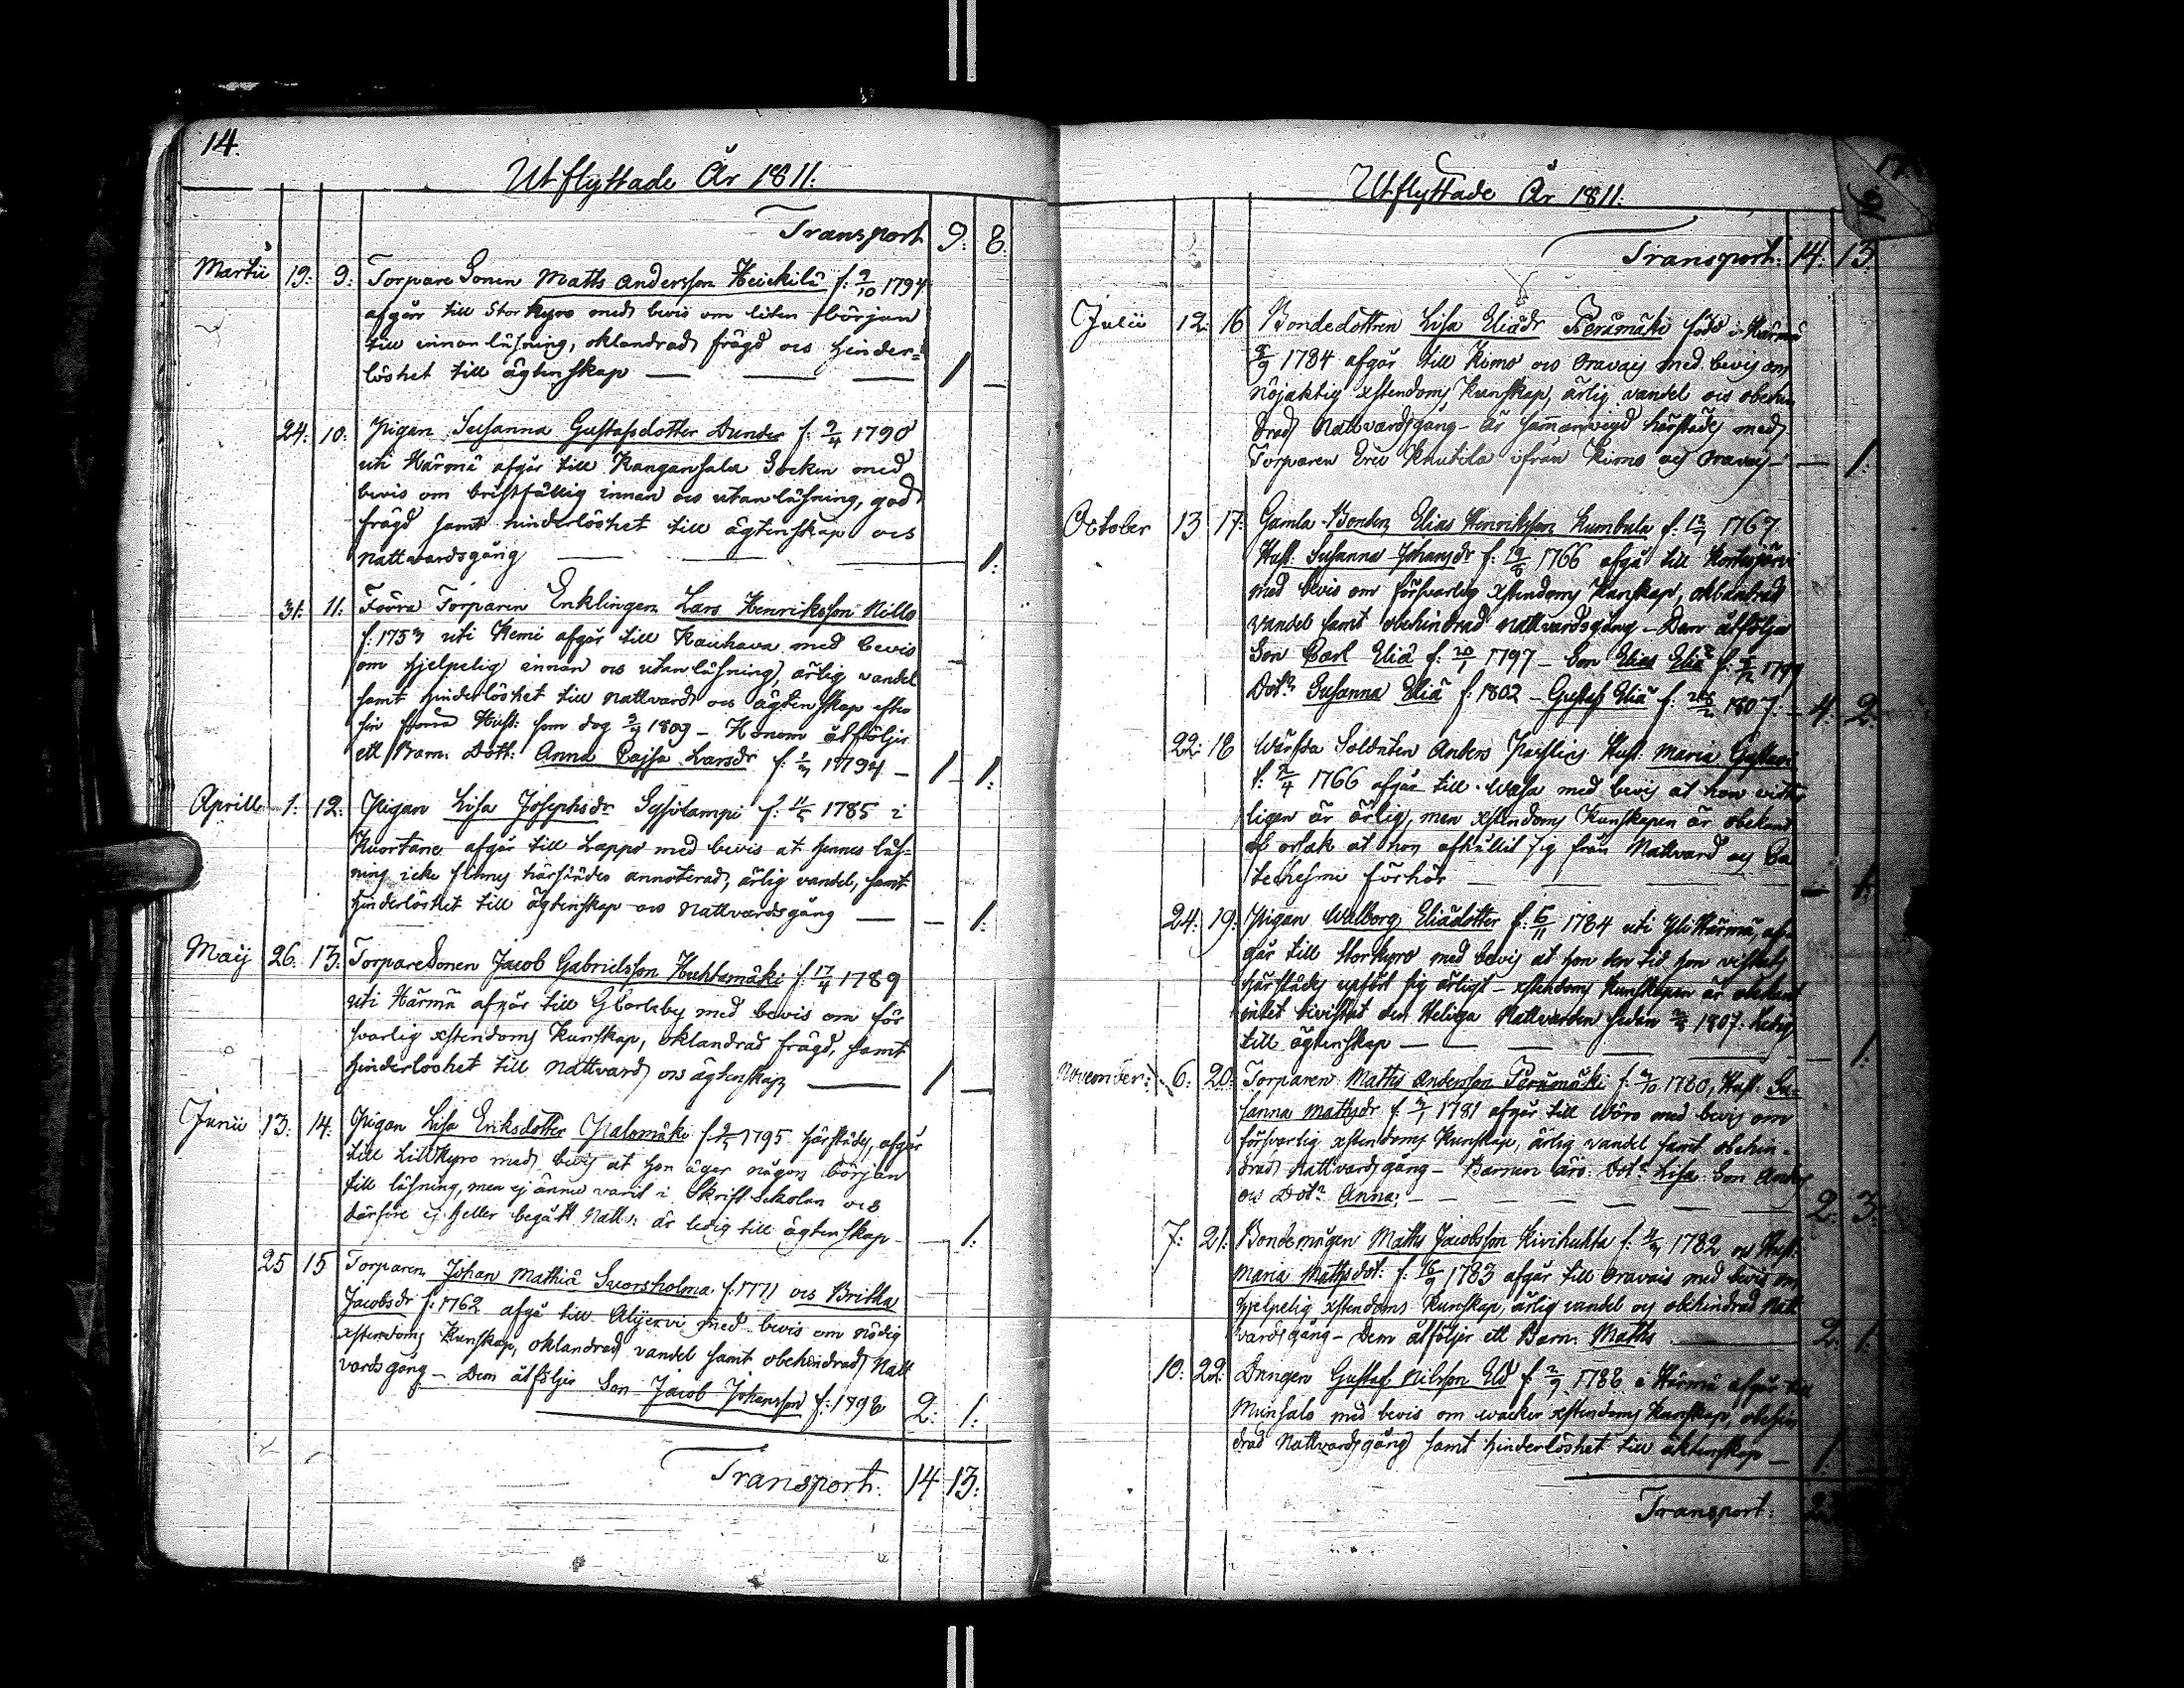 14.
Utflyttade År 1811:
Transport 9: 8:
Martii 19: 9: Torpare Sonen Matts Andersson Heickilä f: 9/10 1794
afgår till Storkyro med bevis om liten början
till innan läsning, oklandrad frägd och hinder=
löshet till ägtenskap — — — 1 —
24: 10: Pigan Susanna Gustafsdotter Dunder f: 9/4 1790
uti Härmä afgår till Kangansala Socken med
bevis om bristfällig innan och utanläsning, god
frägd samt hinderlöshet till ägtenskap och
nattvardsgång — — — 1:
31: 11: Förra Torparen Enklingen Lars Henriksson Nills
f: 1753 uti Kemi afgår till Kauhava med bevis
om hjelpelig innan och utanläsning, ärlig vandel
samt hinderlöshet till nattvard och ägtenskap efter
sin förra Hust: som dog 3/4 1809 – Honom åtföljer
ett Barn. Dott: Anna Cajsa Larsdr f: 1794 — 1 – 1:
Aprill 1: 12: Pigan Lisa Josephsdr Syssilampi f: 11/5 1785 i
Kuortane afgår till Lappo med bevis at hennes läs-
ning icke finnes härstädes annoterad, ärlig vandel, samt
hinderlöshet till ägtenskap och Nattvardsgång — — 1:
Maij 26. 13: Torpare Sonen Jacob Gabrielsson Huhtamäki f: 17/4 1789
uti Härmä afgår till Gl:Carleby med bevis om för
svarlig xstendoms Kunskap, oklandrad frägd, samt
hinderlöshet till Nattvard och ägtenskap — 1 —
Junii 13: 14: Pigan Lisa Eriksdotter Palomäki f: 1795 härstädes, afgår
till Lillkyro med bevis at hon äger någon början
till läsning, men ej ännu varit i Skrift Scholan och
därföre ej heller begått Nattv: är ledig till ägtenskap — 1:
25 15 Torparen Johan Mathiä Suorsholma f: 1771 och Britha
Jacobsdr f: 1762 afgå till Alijervi med bevis om nödig
xstendoms Kunskap, oklandrad vandel samt obehindrad Natt
vardsgång – Dem åtföljer Son Jacob Johansson f: 1798 2: 1:
Transport. 14 13:
17.
Utflyttade År 1811:
Transport: 14: 13:
Julii 12: 16 Bondedottren Lisa Eliädr Perämäki född i Härmä
8/9 1784 afgår till Kimo och Oravais med bevis om
nöjaktig xstendoms Kunskap, ärlig vandel och obehin
drad Nattvardsgång – är sammanvigd härstädes med
Torparen Eric Knutila ifrån Kimo och Oravais – — 1:
October 13 17: Gamla Bonden Elias Henriksson Kumbula f: 1767,
Hust: Susanna Johansdr f: 19/8 1766 afgå till Kortesjärvi
med bevis om försvarlig xstendoms Kunskap, oklandrad
vandel samt obehindrad nattvardsgång – Dem åtföljer
Son Carl Eliä f: 20/1 1797 – Son Elias Eliä f: 1799
Dotr Susanna Eliä f: 1802 – Gustaf Eliä f: 1807: – 4: 2:
22: 18 Värfda Soldaten Anders Hust: Maria Gustavi
f: 2/4 1766 afgår till Wasa med bevis at hon vitter
ligen är ärlig, men xstendoms Kunskapen är obekant
af orsak at hon afhållit sig från Nattvard och Ca
techismi förhör — — — — 1:
24: 19: Pigan Walborg Eliädotter f: 6/11 1784 uti Yli Härmä, af-
går till Storkyro med bevis at hon den tid hon vistats
härstädes upfört sig ärligt – xstendoms Kunskapen är obekant
intet bevistat den Heliga Nattvarden sedan 1807: ledig
till ägtenskap — — — — — 1:
November: 6: 20: Torparen Matts Andersson Perämäki f: 1780, Hust: Su-
sanna Mattsdr f: 1781 afgår till Wörå med bevis om
försvarlig xstendoms Kunskap, ärlig vandel samt obehin-
drad Nattvardsgång – Barnen äro: Dotr Lisa Son Anders
och Dotr Anna: — — — — 2: 3:
7: 21: Bondemågen Matts Jacobsson Kivihuhta f: 1782 och Hust:
Maria Mattsdot: f: 18/9 1783 afgår till Oravais med bevis om
hjelpelig xstendoms Kunskap, ärlig vandel och obehindrad Natt
vardsgång – Dem åtföljer ett Barn. Matts — 2: 1:
10: 22: Drängen Gustaf Nilsson Eld f: 2/9 1788 i Härmä afgår till
Munsala med bevis om wacker xstendoms Kunskap, obehin
drad Nattvardsgång samt hinderlöshet till äktenskap — 1
Transport: